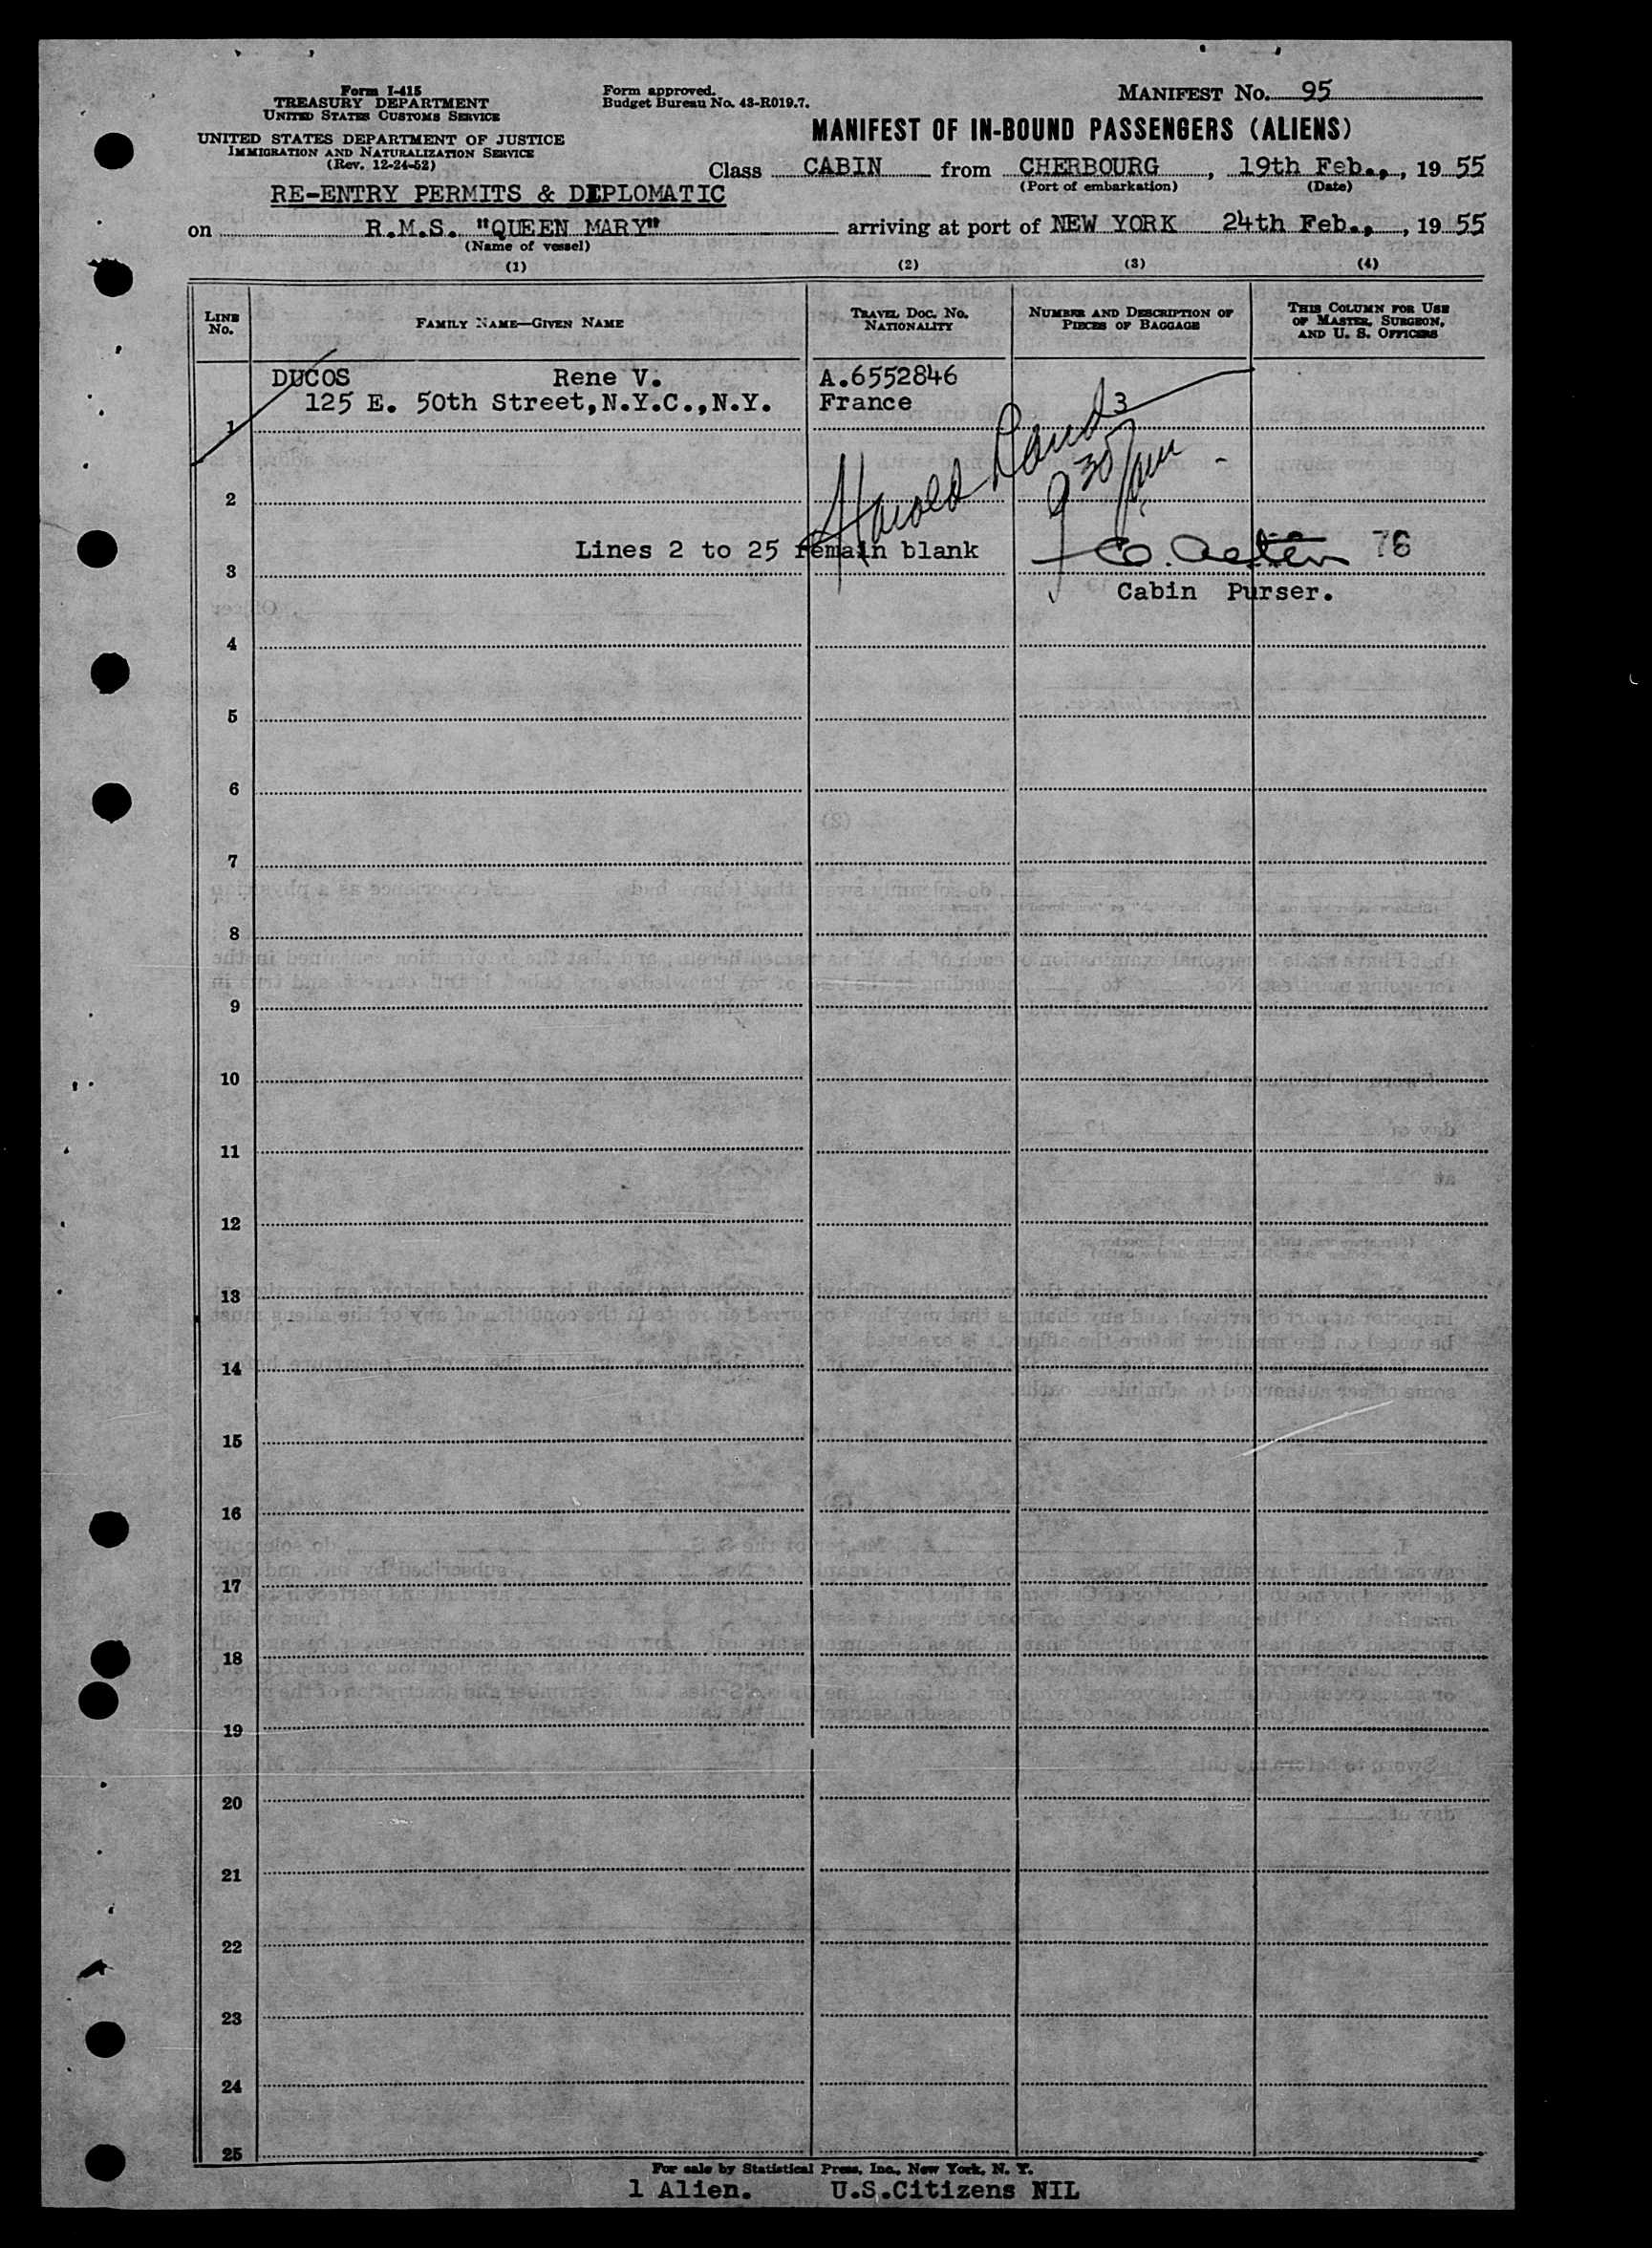 Form I-415
TREASURY DEPARTMENT
UNITED STATES CUSTOMS SERVICE
UNITED STATES DEPARTMENT OF JUSTICE
IMMIGRATION AND NATURALIZATION SERVICE
(Rev. 12-24-52)
Form approved.
Budget Bureau No. 43-R019.7.
MANIFEST NO. 95
MANIFEST OF IN-BOUND PASSENGERS (ALIENS)
Class CABIN from CHERBOURG, 19th Feb., , 19 55
(Port of embarkation) (Date)
RE-ENTRY PERMITS & DIPLOMATIC
on R.M.S. "QUEEN MARY" arriving at port of NEW YORK 24th Feb., , 19 55
(Name of vessel)
(1) (2) (3) (4)
LINE NO. FAMILY NAME—GIVEN NAME TRAVEL DOC. NO. NATIONALITY NUMBER AND DESCRIPTION OF PIECES OF BAGGAGE THIS COLUMN FOR USE OF MASTER, SURGEON, AND U. S. OFFICERS
DUCOS Rene V. A.6552846
125 E. 50th Street,N.Y.C.,N.Y. France 3
1
Harold
9 30
2
Lines 2 to 25 remain blank 76
3
Cabin Purser.
4
5
6
7
8
9
10
11
12
13
14
15
16
17
18
19
20
21
22
23
24
25
For sale by Statistical Press, Inc., New York, N. Y.
1 Alien. U.S.Citizens NIL